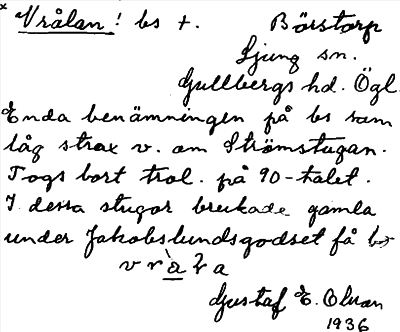 × Vrålan! bs +. Börstorp
Ljung sn.
Gullbergs hd. Ögl.
Enda benämningen på bs som
låg strax v. om Strömstugan.
Togs bort trol. på 90-talet.
I dessa stugor brukade gamla
under Jakobslundsgodset få bo
Gustaf E. Olsson
1936